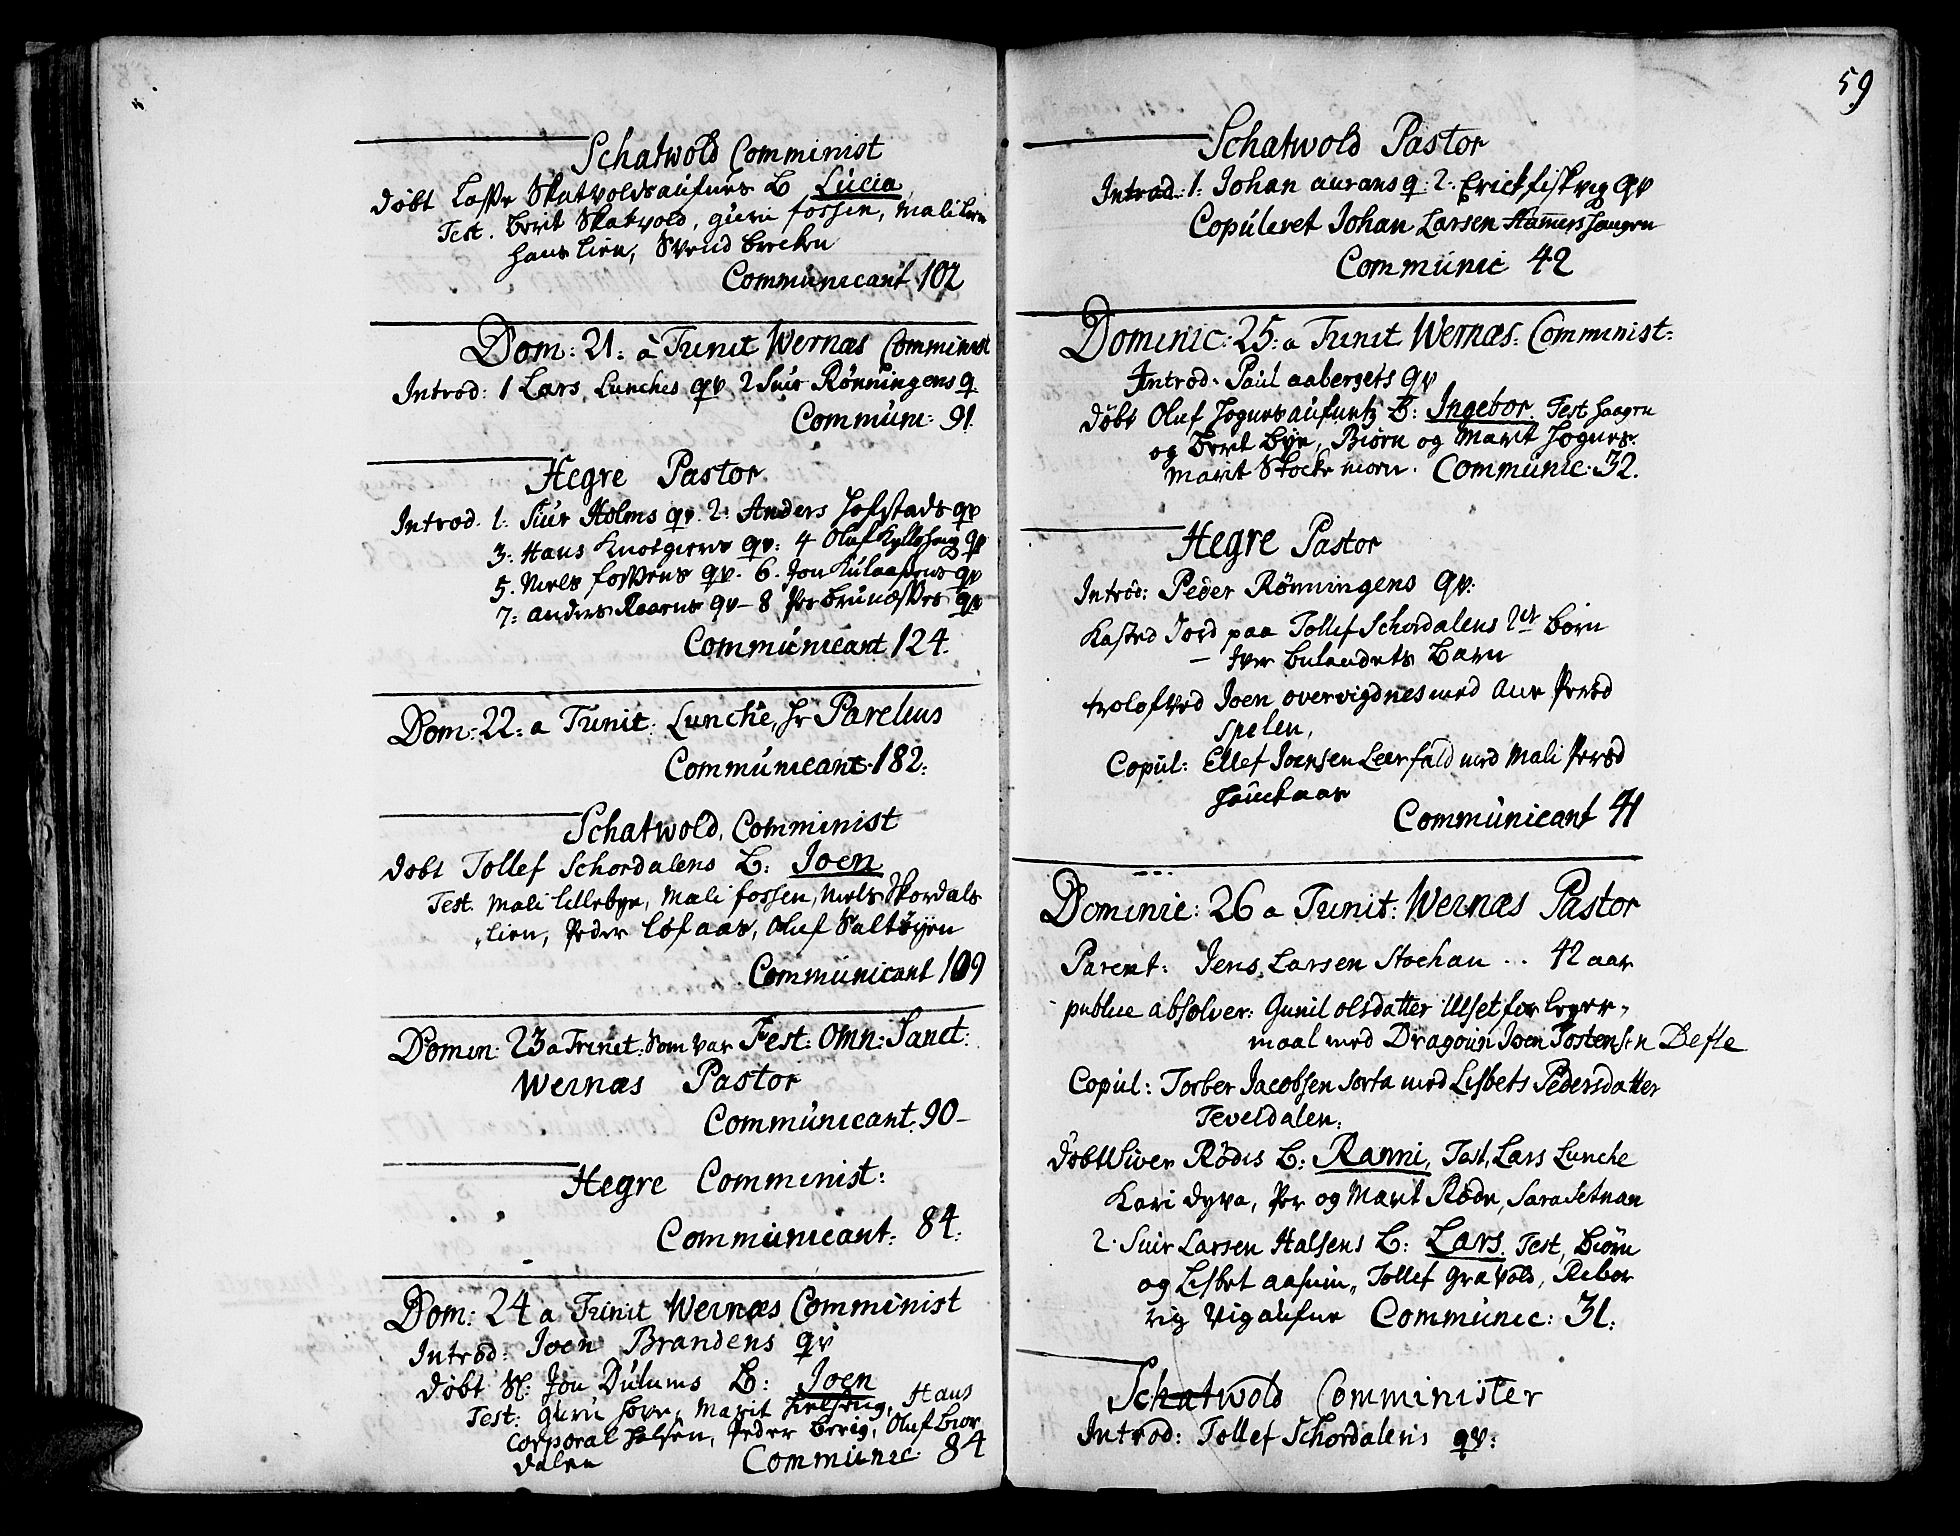 Schatwold Comminist
døbt Lasse Skatvoldsaufnes B Lucia
Test. Berit Skatvold, guru fossen, Mali
hans lien, Svend
Communicant 102
Dom: 21: à Trinit Wernæs Comminist
Introd: 1 Lars Lunches qv 2 Siur Rønningens q.
Commun: 91.
Hegre Pastor
Introd. 1: Siur Holms qv. 2: Anders Hofstads qv
3: Hans qv: 4 Oluf qv
5. Niels fossens qv. 6. Jon qv
7: anders qv - 8 Per qv
Communicant 124.
Dom: 22: a Trinit: Lunche, hr Parelius
Communicant 182:
Schatwold, Comminist
døbt Tollef Schordalens B: Joen
Test. Mali Lillebye, Mali fossen, Niels Skordals
lien, Peder Løfaas, Oluf Saltøyen
Communicant 109
Domin: 23 a Trinit: som var Fest: Omn: Sanct:
Wernæs Pastor
Communicant: 90-
Hegre Comminist:
Communicant: 84:
Dom: 24 a Trinit Wernæs Comminist
Introd: Joen Brandens qv
døbt Sl: Jon Dulums B: Joen
Test: guru hove, Marit, Hans
Corporal Halsen, Peder, Oluf Bior
dalen Communic: 84
59
Schatwold Pastor
Introd: 1: Johan aurans q: 2: Erick fiskvig qv
Copuleret Johan Larsen Hammershaugen
Communic 42
Dominic: 25: a Trinit Wernæs: Comminist:
Introd: Paul aabergets qv
døbt Oluf B: Ingebor. Test haagen
og Berit Bye, Biørn og Marit
Marit Stockemoen. Communic: 32.
Hegre Pastor
Introd: Peder Rønningens qv:
Kasted Jord paa Tollef Schordalens 2de børn
- Iver Bulandets Barn
trolofved Joen overvignes med Ane Persd
spelen,
Copul: Ellef Joensen Leerfald med Mali Persd
Communicant 41
Dominic: 26 a Trinit: Wernæs Pastor
Parent: Jens Larsen Stochau .. 42 aar
publice absolver: Gunil olsdatter Ulset for leyer,
maal med Dragoun Joen Tostensen Define
Copul: Torber Jacobsen sorta med Lisbets Pedersdatter
Teveldalen:
døbt Siver Rødis B: Ranni, Test, Lars Lunche
Kari dyva, Per og Marit Røde, Sara Setnan
2. Siur Larsen Halsens B: Lars. Test, Biørn
og Lisbet aasum, Tollef Gravold, Rebec
Communic: 31.
Schatwold Comminister
Introd: Tollef Schordalens qv: